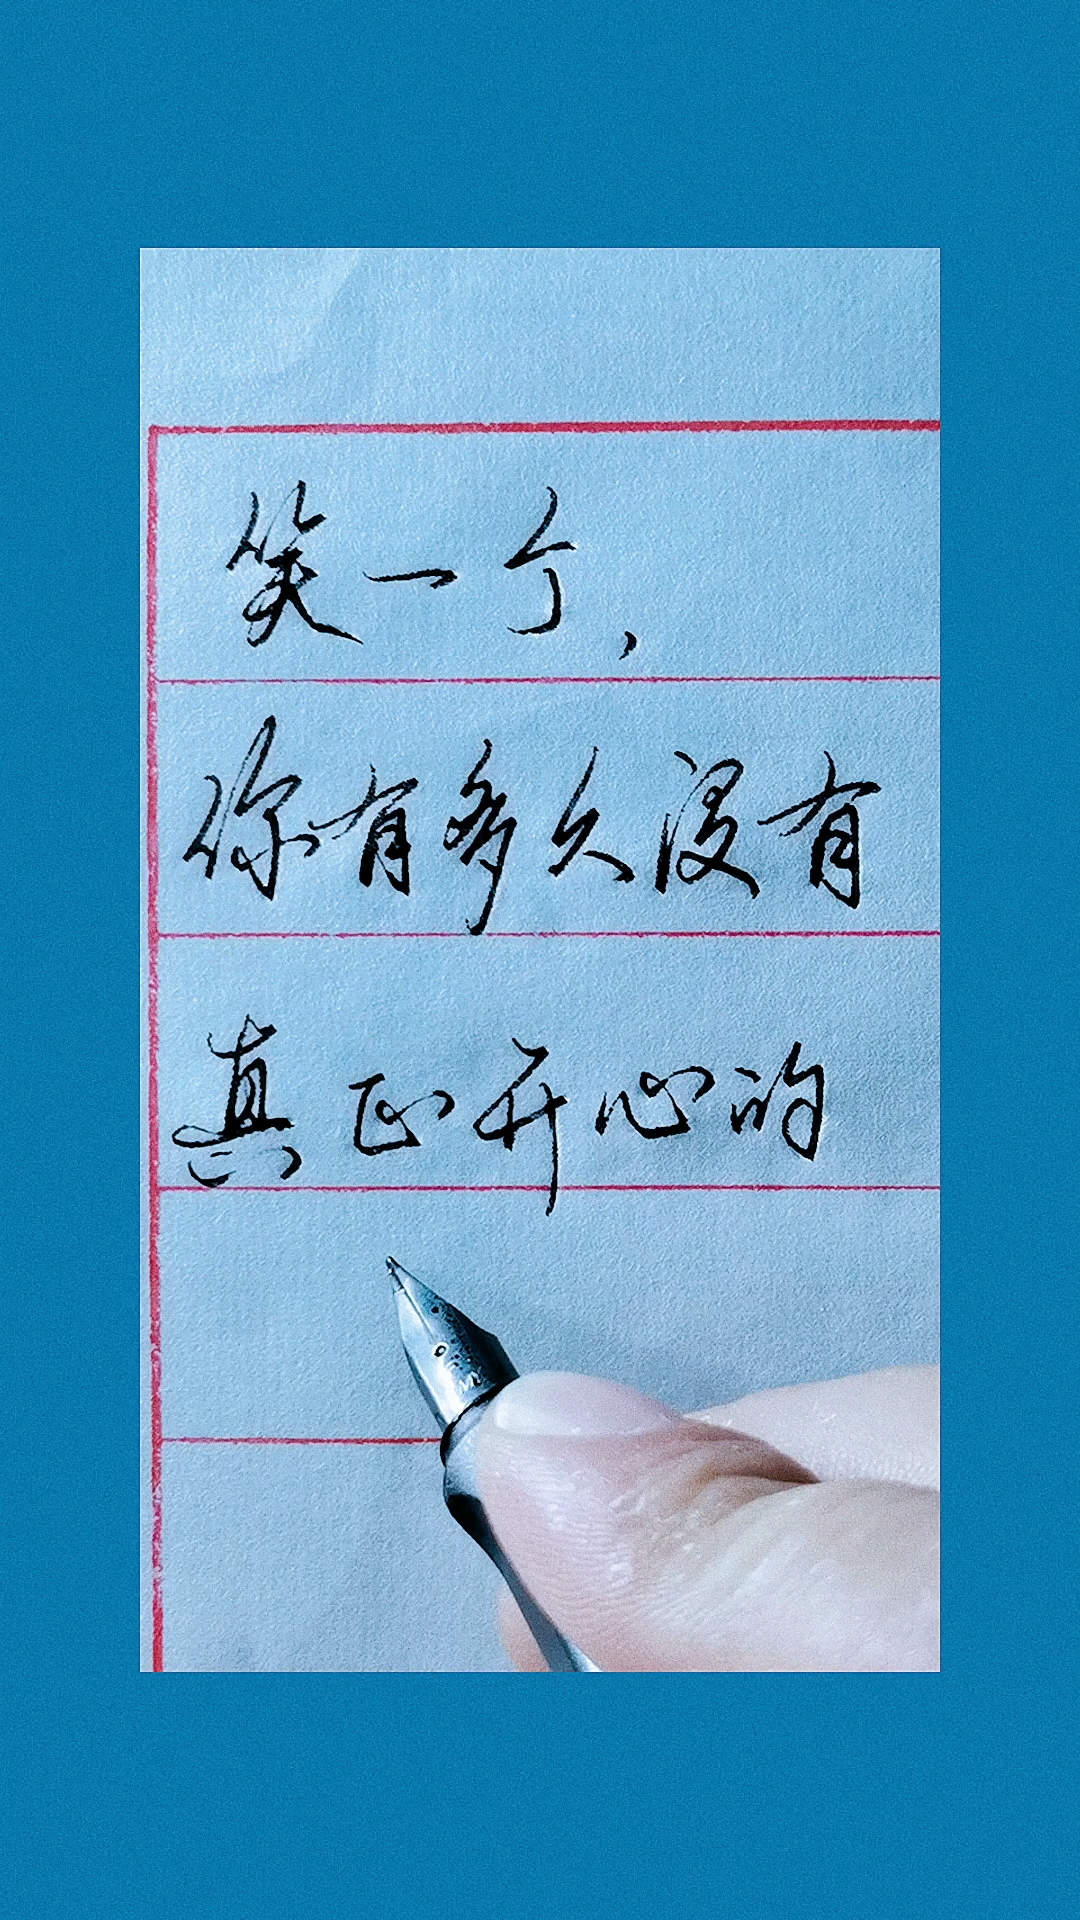 笑一个，
你有多久没有
真正开心的